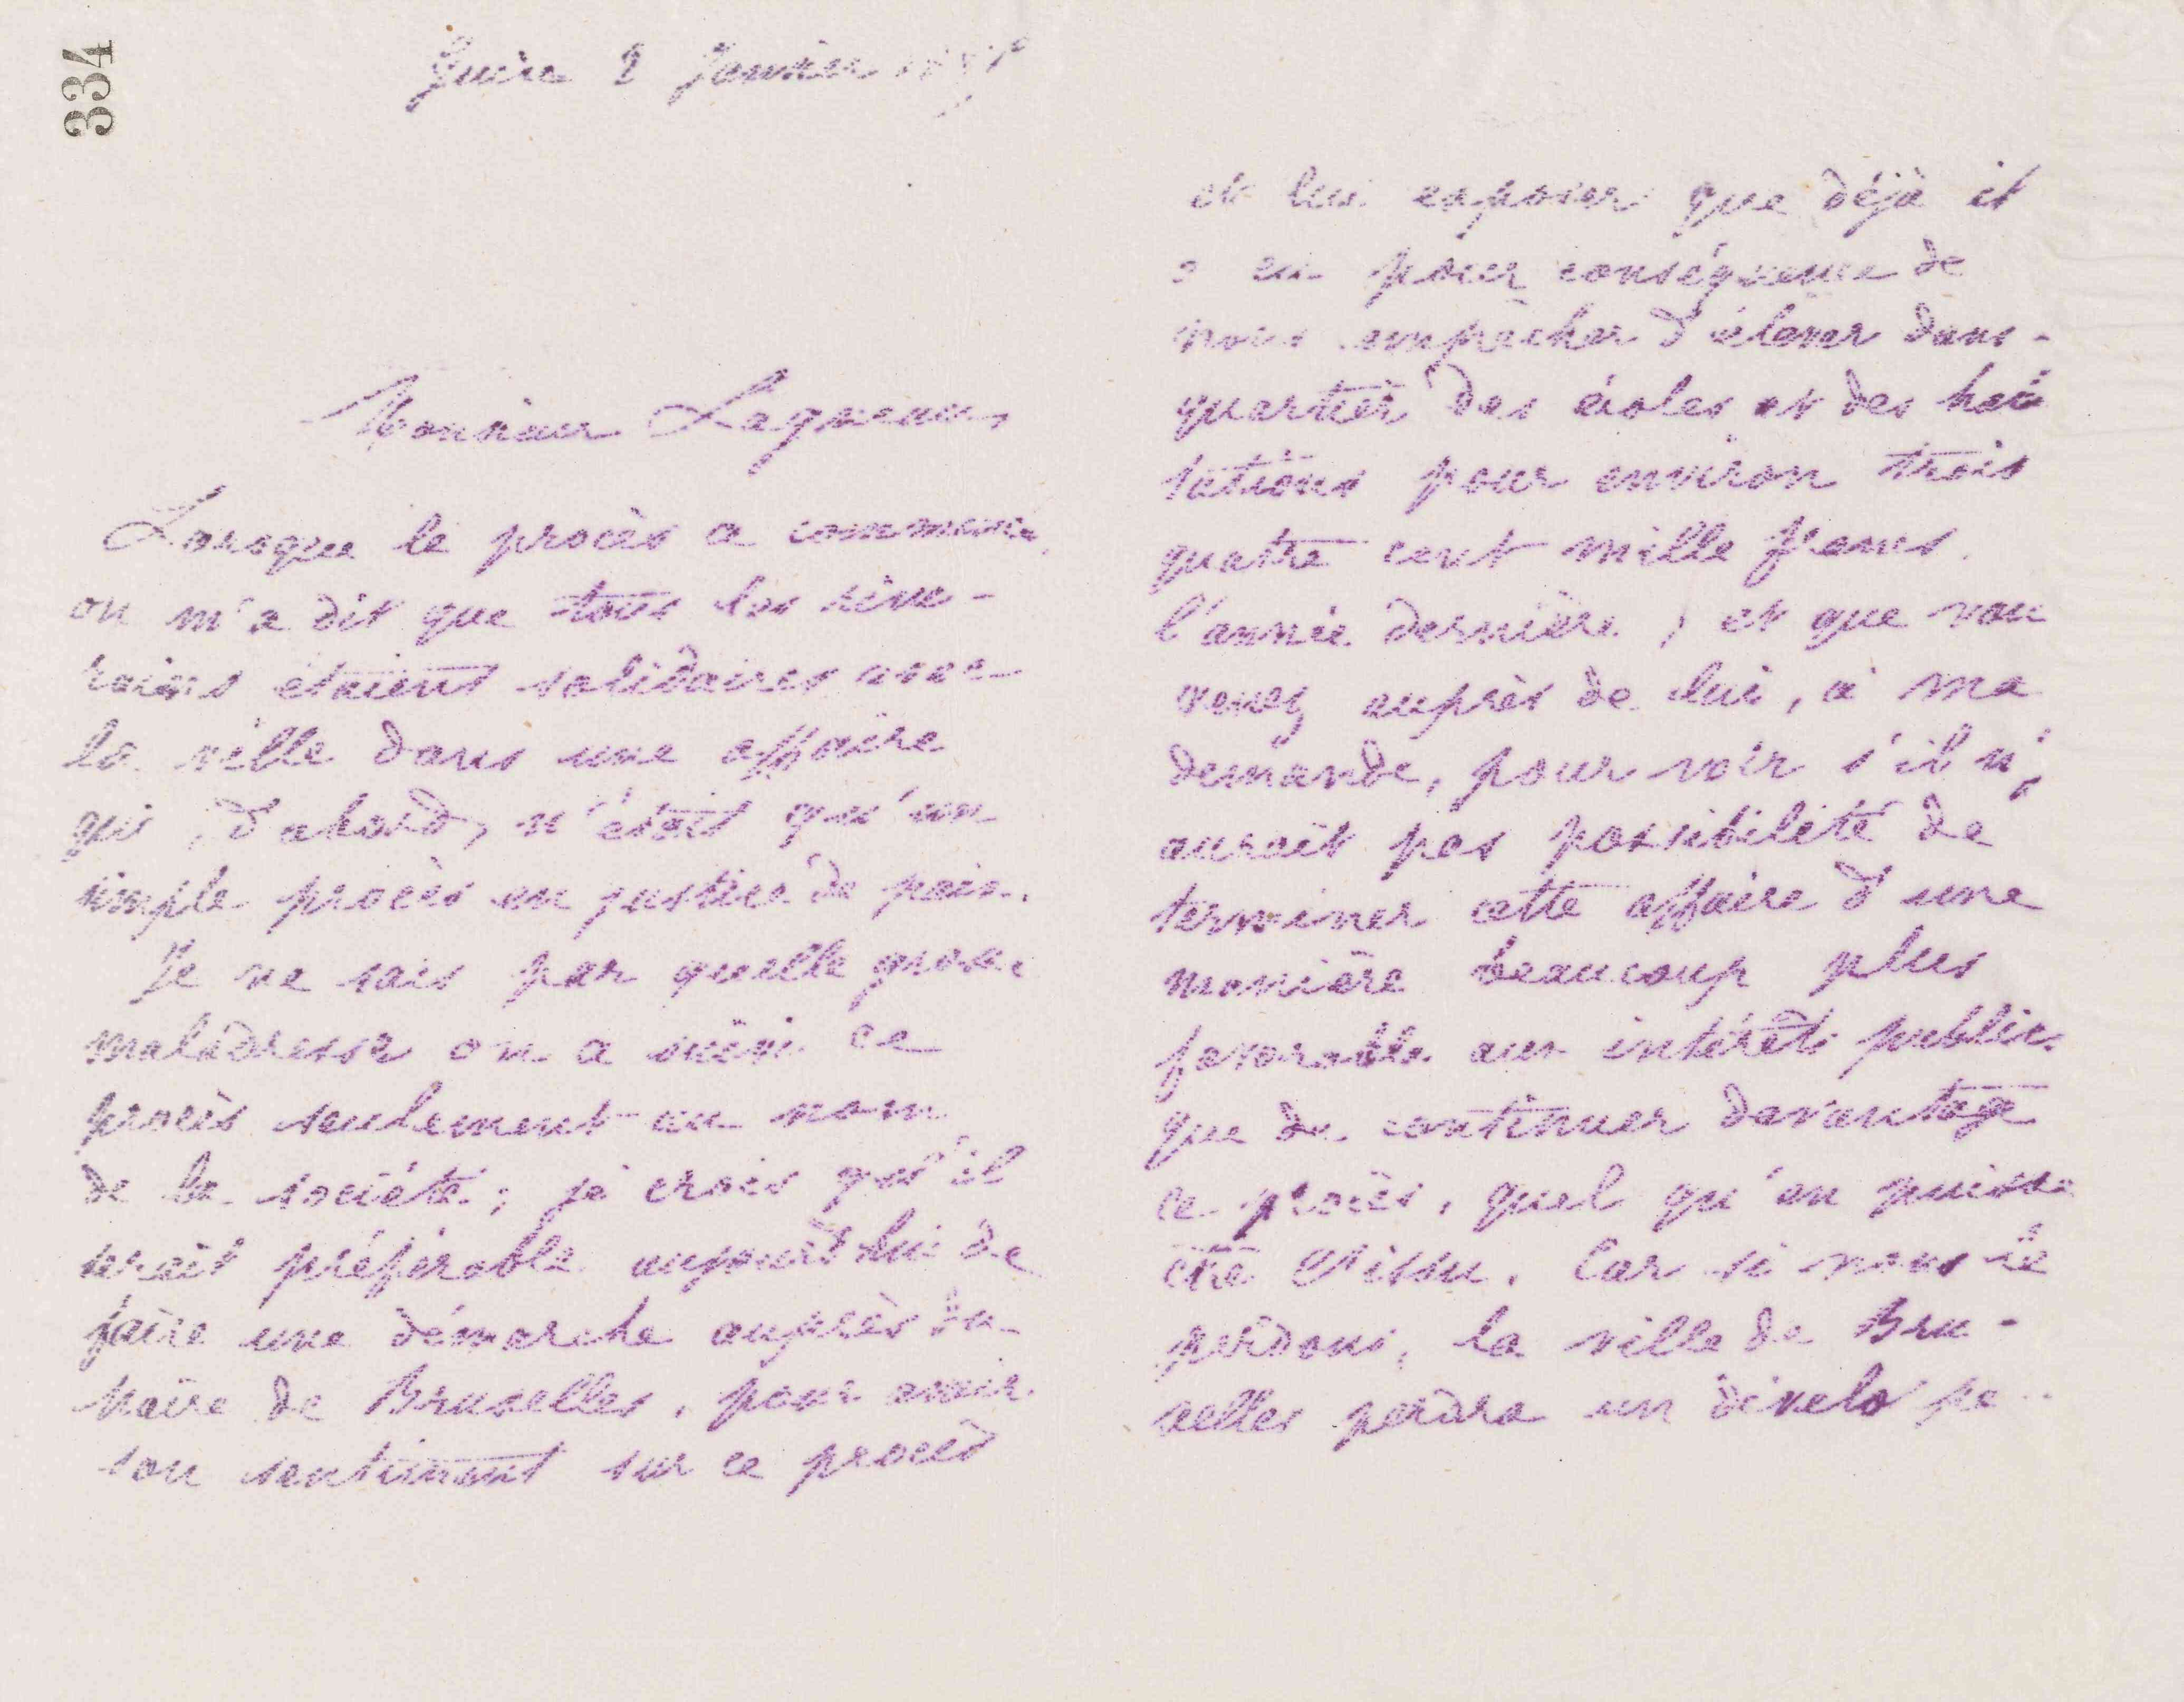 334
Guise 2 Janvier
Monsieur Lagneau,
Lorsque le procès a commencé,
on m'a dit que tous les rive-
rains étaient solidaires avec
la ville dans une affaire
qui, d'abord, n'était qu'un
simple procès en justice de paix.
Je ne sais par quelle grosse
maladresse on a suivi ce
procès seulement au nom
de la société; je crois qu'il
serait préférable aujourd'hui de
faire une démarche auprès du
Maire de Bruxelles, pour avoir
son sentiment sur ce procès
et lui exposer que déjà il
a eu pour conséquence de
nous empêcher d'élever dans
quartier des écoles et des habi
tations pour environ trois
quatre cent mille francs
l'année dernière, et que vous
venez auprès de lui, à ma
demande, pour voir s'il n'y
aurait pas possibilité de
terminer cette affaire d'une
manière beaucoup plus
favorable aux intérêts publics
que de continuer davantage
ce procès, quel qu'en puisse
être l'issu. Car si nous le
perdons, la ville de Bru-
xelles perdra un dévelo pe-